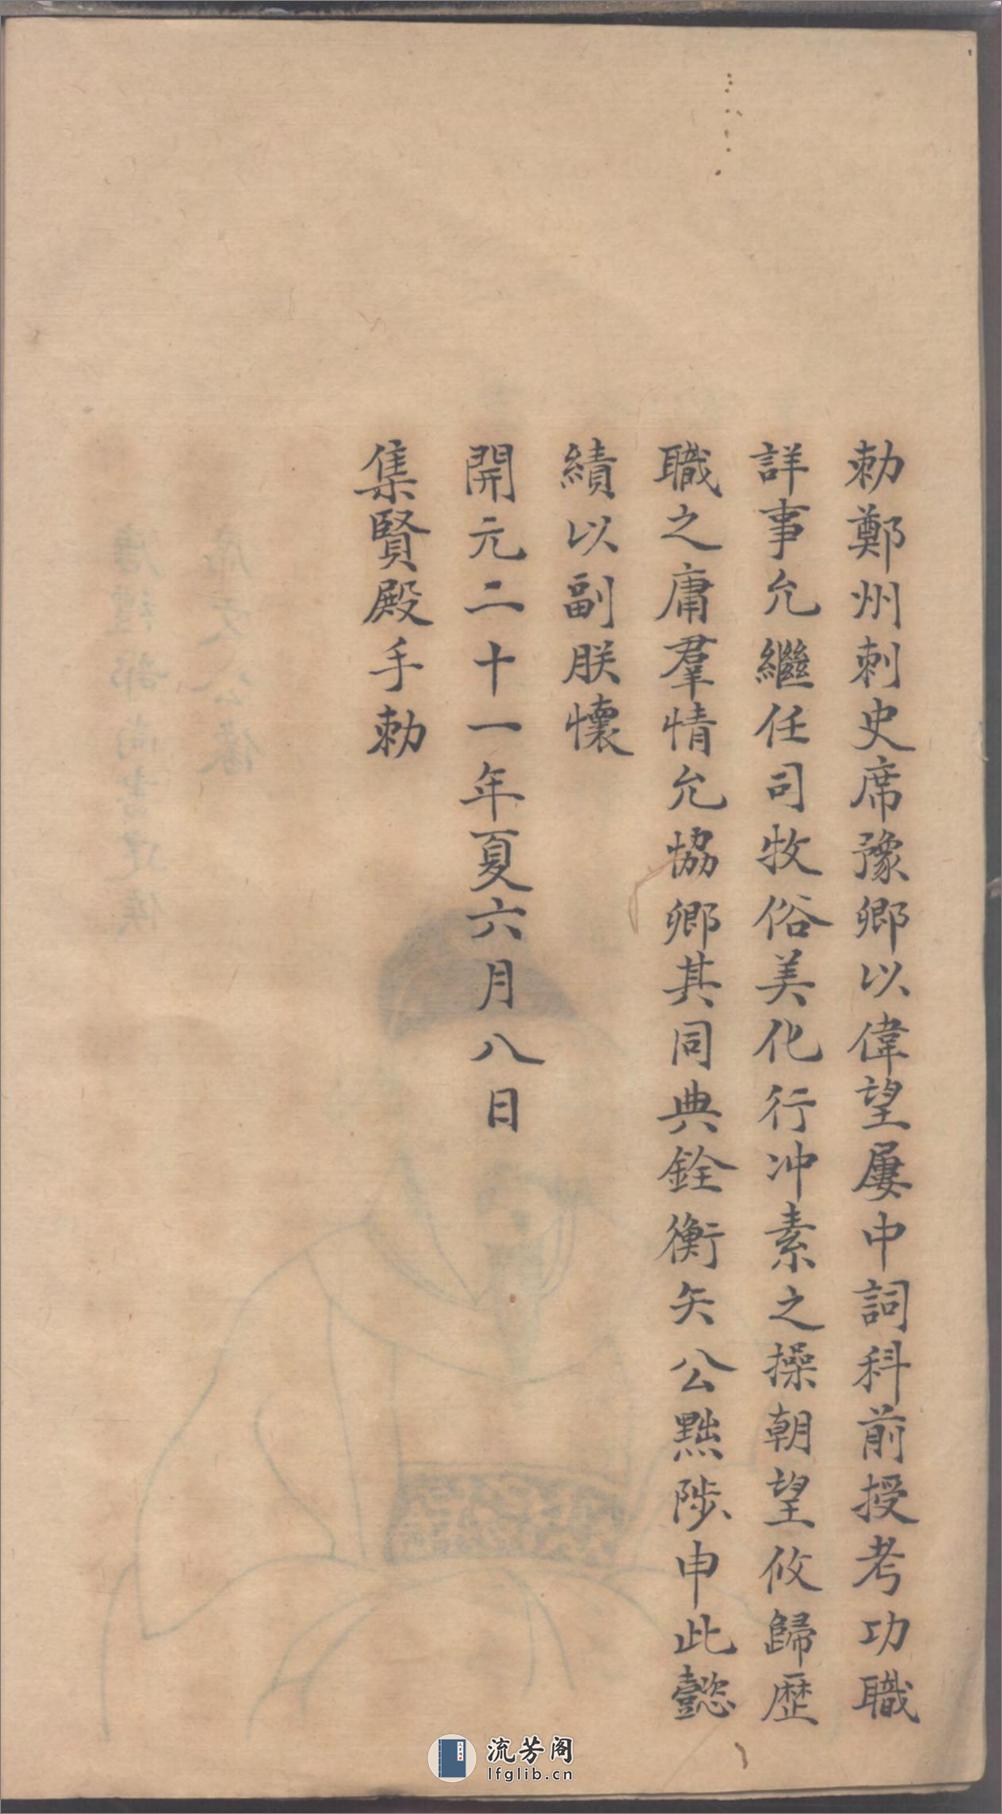 勅鄭州刺史席豫卿以偉望屢中詞科前授考功職
詳事允繼任司牧俗美化行冲素之操朝望攸歸歷
職之庸羣情允協卿其同典銓衡矢公黜陟申此懿
績以副朕懷
開元二十一年夏六月八日
集賢殿手勅
流芳阁
lfglib.cn